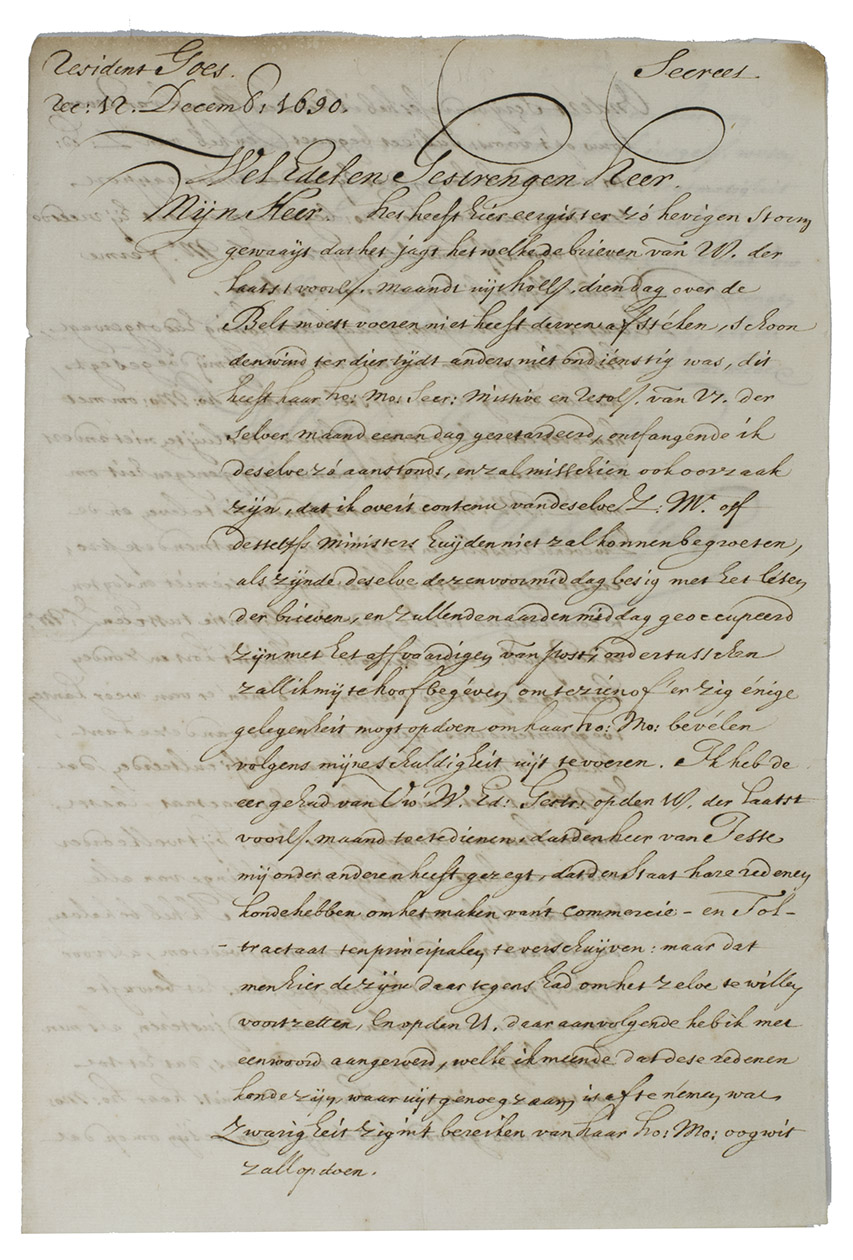 Resident Goes. Secreet.
rec: 12. Decemb: 1690.
Wel Edelen Gestrengen Heer.
Mijn Heer. het heeft hier eergister zó hevigen storm
gewaaÿt dat het jagt het welke de brieven van der
laatst voorl. maandt uijt holl. diensdag over de
Belt moest voeren niet heeft derren afstéken, schoon
den wind ter dier tijdt anders niet ondienstig was, dit
heeft haar ho: Mo: Secr: Missive en Resol. van der
selver maand eenen dag geretardeerd, ontfangende ik
deselve zó aanstonds, en zal misschien ook oorzaak
zijn, dat ik over't contenu van deselve Z: Mt. off
desselfs Ministers huijden niet zal konnen begroeten,
als zijnde deselve dezen voormiddag besig met het lésen
der brieven, en zullende naar den middag geoccupeerd
zijn met het affvaardigen van post; ondertusschen
zall ik mij te hoof begéven, om te zien of 'er zig énige
gelegenheit mogt opdoen om haar ho: Mo: bevélen
volgens mijne schuldigheit uijt te voeren. Ik heb de
eer gehad van Uw W. Ed: Gestr: op den der laatst
voorl. maand toe te dienen, dat den heer van Jesse
mij onder anderen heeft gezegt, dat den Staat hare redenen
konde hebben om het maken van't Commercie - en Tol-
- tractaat ten principalen te verschuijven: maar dat
men hier de zijne daar tegens had om het zelve te willen
voortzetten, En op den daar aanvolgende heb ik met
een woord aangeroerd, welke ik meende dat dese redenen
konde zijn, waar uijt genoegzaam is af te némen, wat
Zwarigheit zig in't bereiken van haar ho: Mo: oogwit
zall opdoen.